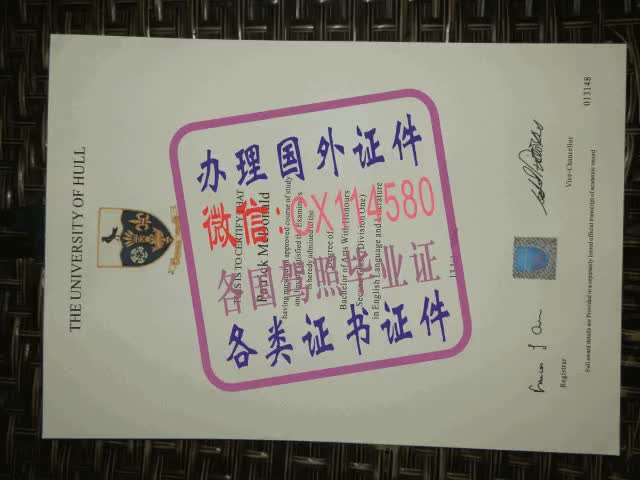 THE UNIVERSITY OF HULL
THIS IS TO CERTIFY THAT
Patrick McDonald
having pursued an approved course of study
and having satisfied the Examiners
is hereby admitted to the
Degree of
Bachelor of Arts With Honours
Second Class (Division One)
in English Language and Literature
Registrar
Vice-Chancellor
013148
Full award details are Provided in a separately issued official transcript of academic record
办理国外证件
微信:CX114580
各国驾照毕业证
各类证书证件